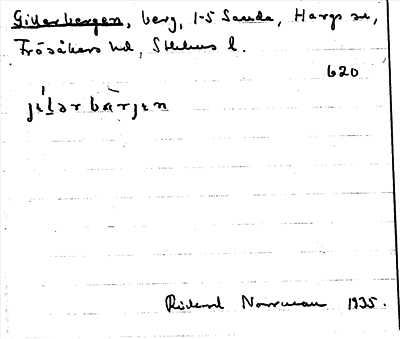 Gillerbergen, berg, 1-5 Sanda, Hargs sn,
Frösåkers hd, Sthlms l.
620
jɩ́lər bàrjɩn
Rickard Norrman 1935.